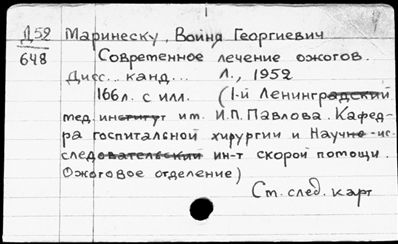 Д52 Маринеску, Война Георгиевич
648 Современное лечение ожогов.
Дисс... канд... Л., 1952
166 л. с илл. (1-й Ленинградский
мед. институт им. И.П. Павлова. Кафед-
ра госпитальной хирургии и Научно-ис-
следовательский ин-т скорой помощи.
Ожоговое отделение)
См. след. карт